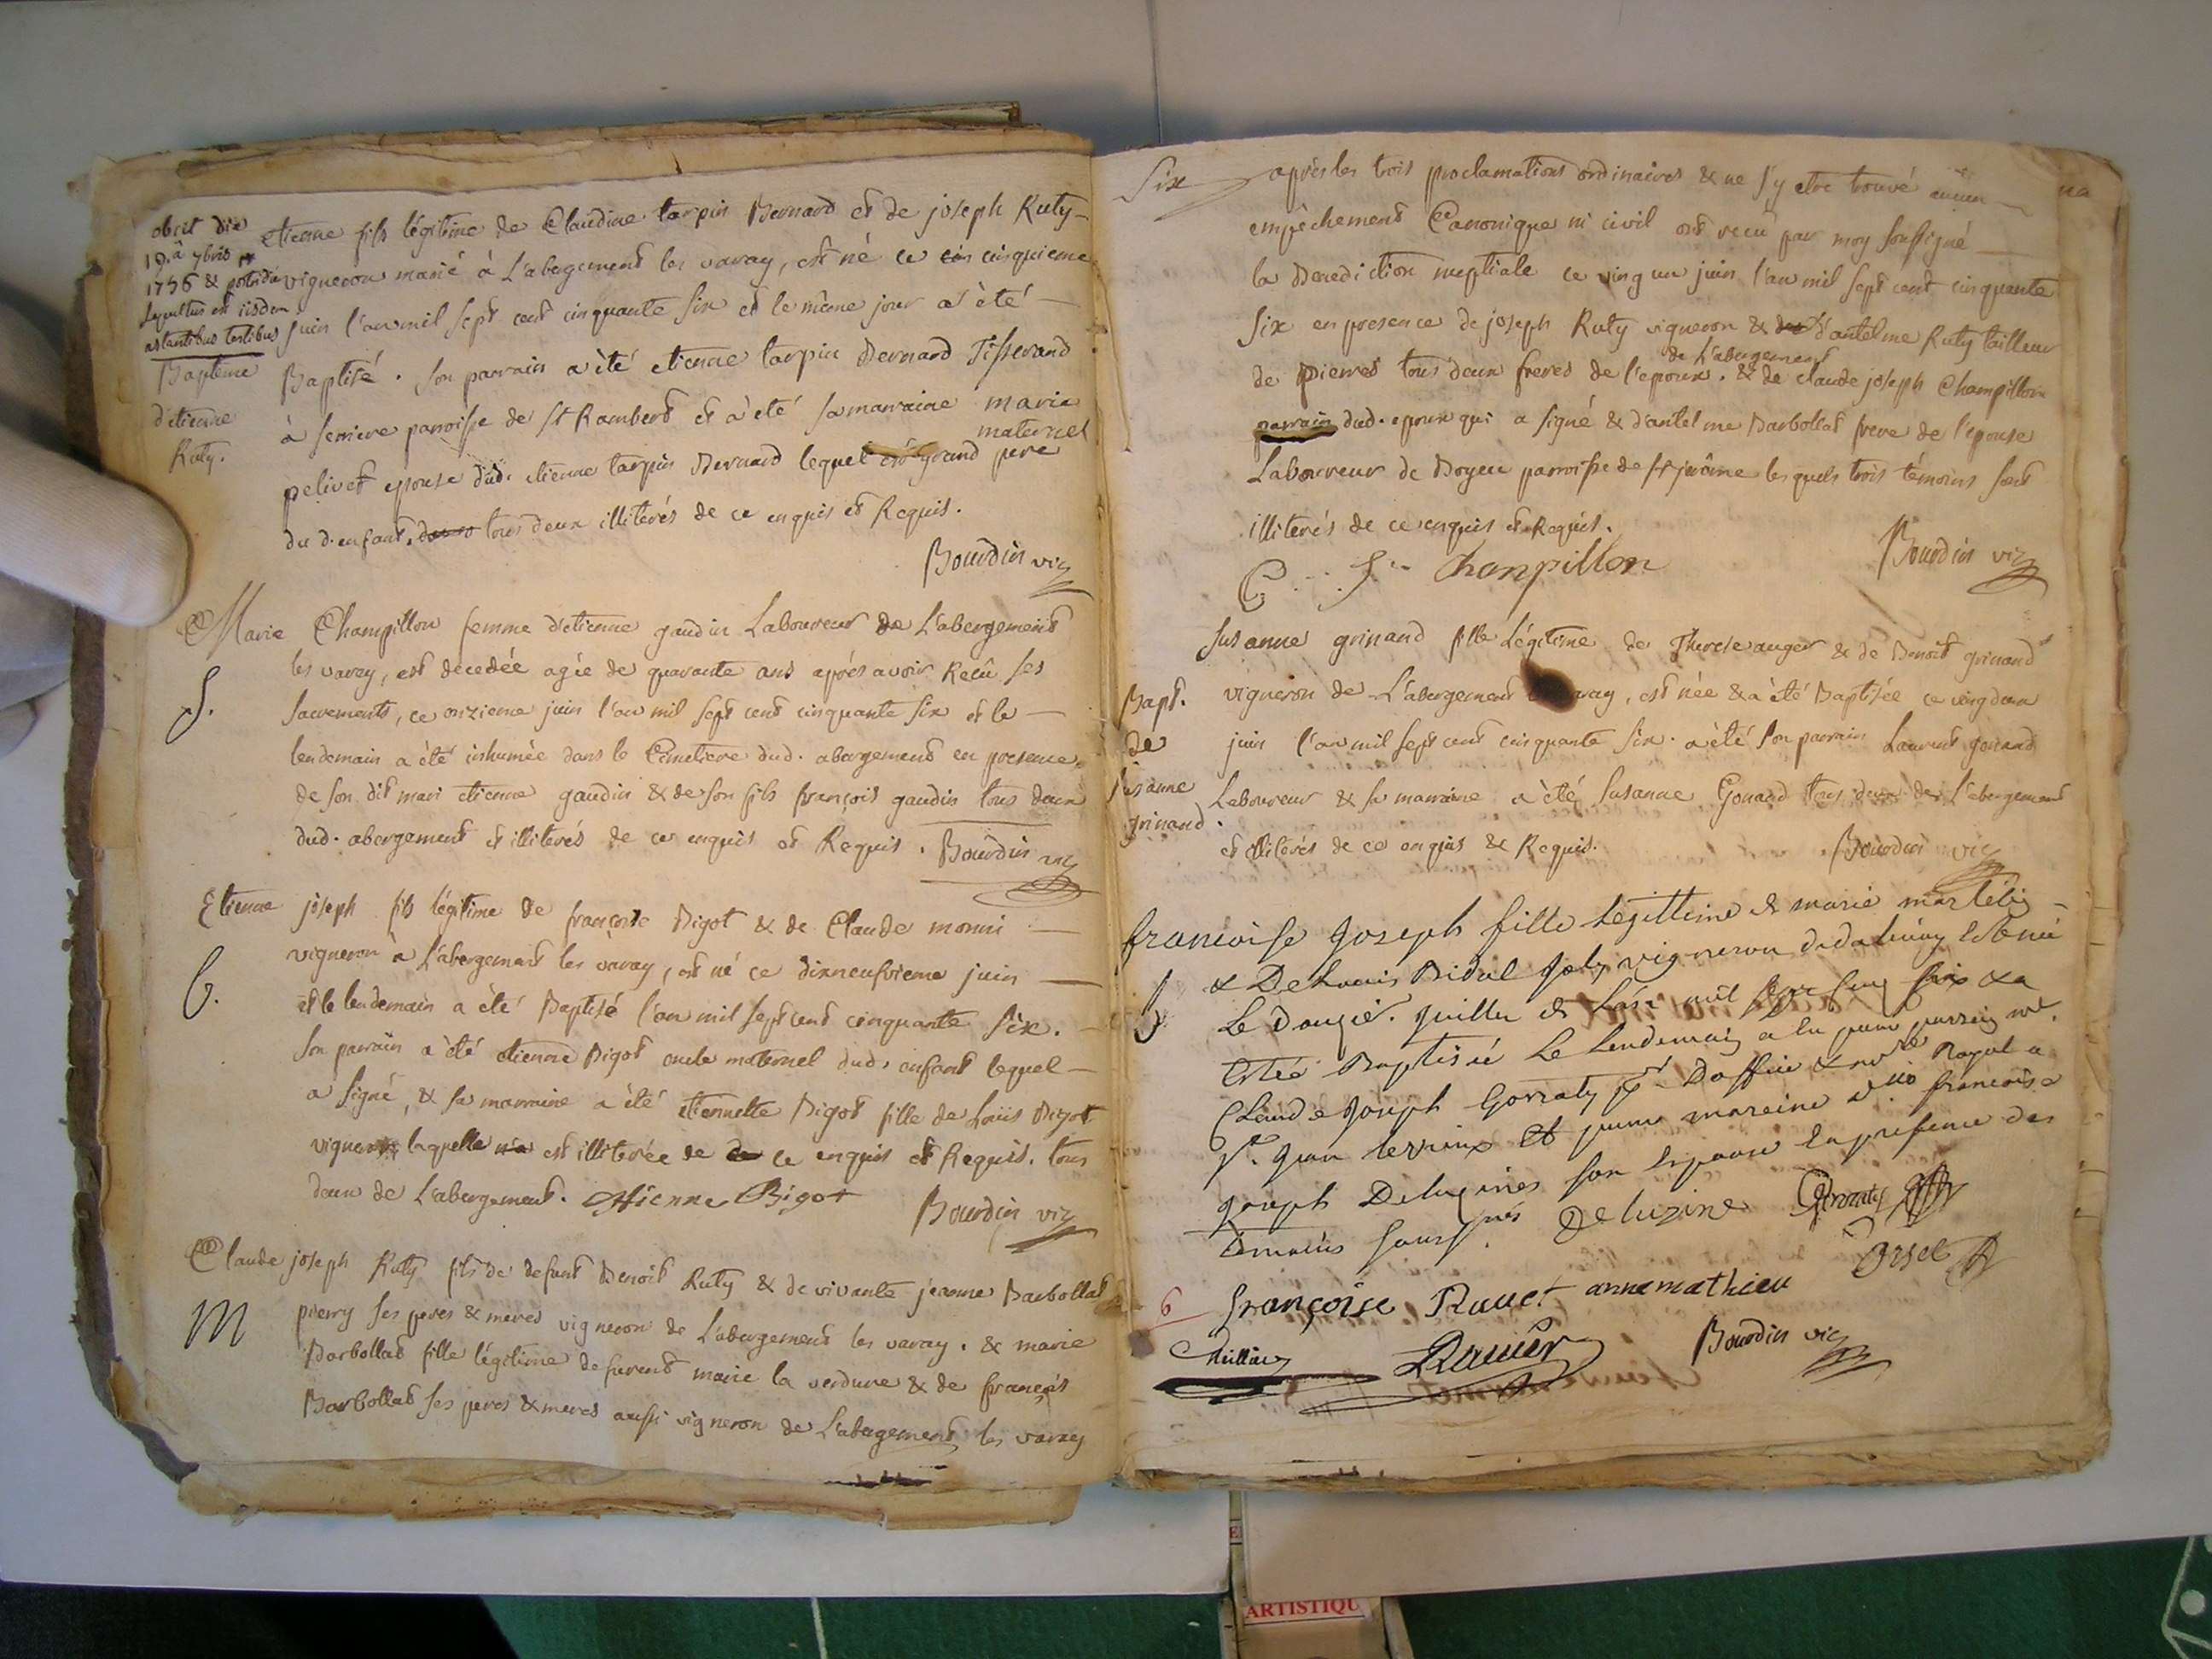 obiit die
19a 7bris
1756 & postridie
sepultus est iisdem
astantibus testibus
Baptême
d'etienne
Ruty.
etienne fils légitime de Claudine tarpin Bernard et de joseph Ruty
vigneron marié à L'abergement les varay, est né ce cinquieme
juin l'an mil sept cent cinquante six et le même jour a été
Baptisé. son parrain a été etienne tarpin Bernard Tisserand
à serriere parroisse de St Rambert et a été sa marraine marie
maternel
pelivet epouse dud. etienne tarpin Bernard lequel est grand pere
du d. enfant. tous deux illiterés de ce enquis et Requis.
Bourdin vic
Marie Champillon femme d'etienne gaudin Laboureur de L'abergement
les varey, est decedée agée de quarante ans aprés avoir Recû ses
S.
sacrements, ce onzieme juin l'an mil sept cent cinquante six et le
lendemain a été inhumée dans le Cimetiere dud. abergement en presence
de son dit mari etienne gaudin & de son fils françois gaudin tous deux
dud. abergement et illiterés de ce enquis et Requis. Bourdin vic
Etienne joseph fils légitime de françoise Bigot & de Claude monni
vigneron à L'abergement les varay, est né ce dixneufvieme juin
B.
et le lendemain a été Baptisé l'an mil sept cent cinquante six.
son parrain a été etienne Bigot oncle maternel dud. enfant lequel
a signé, & sa marraine a été etiennette Bigot fille de Loüis Bigot
vigneron laquelle est illiterée de ce enquis et Requis. tous
deux de L'abergement. Etienne Bigot Bourdin vic
Claude joseph Ruty fils de defunt Benoit Ruty & de vivante jeanne Barbollat
M
pierry ses peres & meres vigneron de L'abergement les varay. & marie
Barbollat fille légitime de furent marie la verdure & de françois
Barbollat ses peres & meres aussi vigneron de L'abergement les varay
six
aprés les trois proclamations ordinaires & ne s'y etre trouvé aucun
empêchement Canonique ni civil ont reçu par moy soussigné
la Benediction nuptiale ce ving un juin l'an mil sept cent cinquante
six en presence de joseph Ruty vigneron & d'antelme Ruty tailleur
de L'abergement
de pierres tous deux freres de l'epoux. & de claude joseph Champillon
parrain dud. epoux qui a signé & d'antelme Barbollat frere de l'epouse
Laboureur de Boyeu parroisse de St jerôme les quels trois témoins sont
illiterés de ce enquis et Requis.
C Chanpillon Bourdin vic
susanne grinand fille Légitime de Therese auger & de Benoit grinand
Bapt.
de
susanne
grinand.
vigneron de L'abergement varay, est née & a été Baptisée ce ving deux
juin l'an mil sept cent cinquante six. a été son parrain Laurent gonand
Laboureur & sa marraine a été susanne Gonand tous deux de L'abergement
et illiterés de ce enquis & Requis. Bourdin vic
francoise Joseph fille legittime de marie
& De Louis Bidal Joly vigneron
Le juillet mil six & a
Estée Baptisée Le Lendemain a eu pour parrein
Claude Joseph Gorraty
Et pour mareine francoise
Joseph Deluzines son Espouse En presence des
temoins Deluzine Gorraty
Orsel
6 françoise Ravet anne mathieu
Ravier Bourdin vic
ARTISTIQU